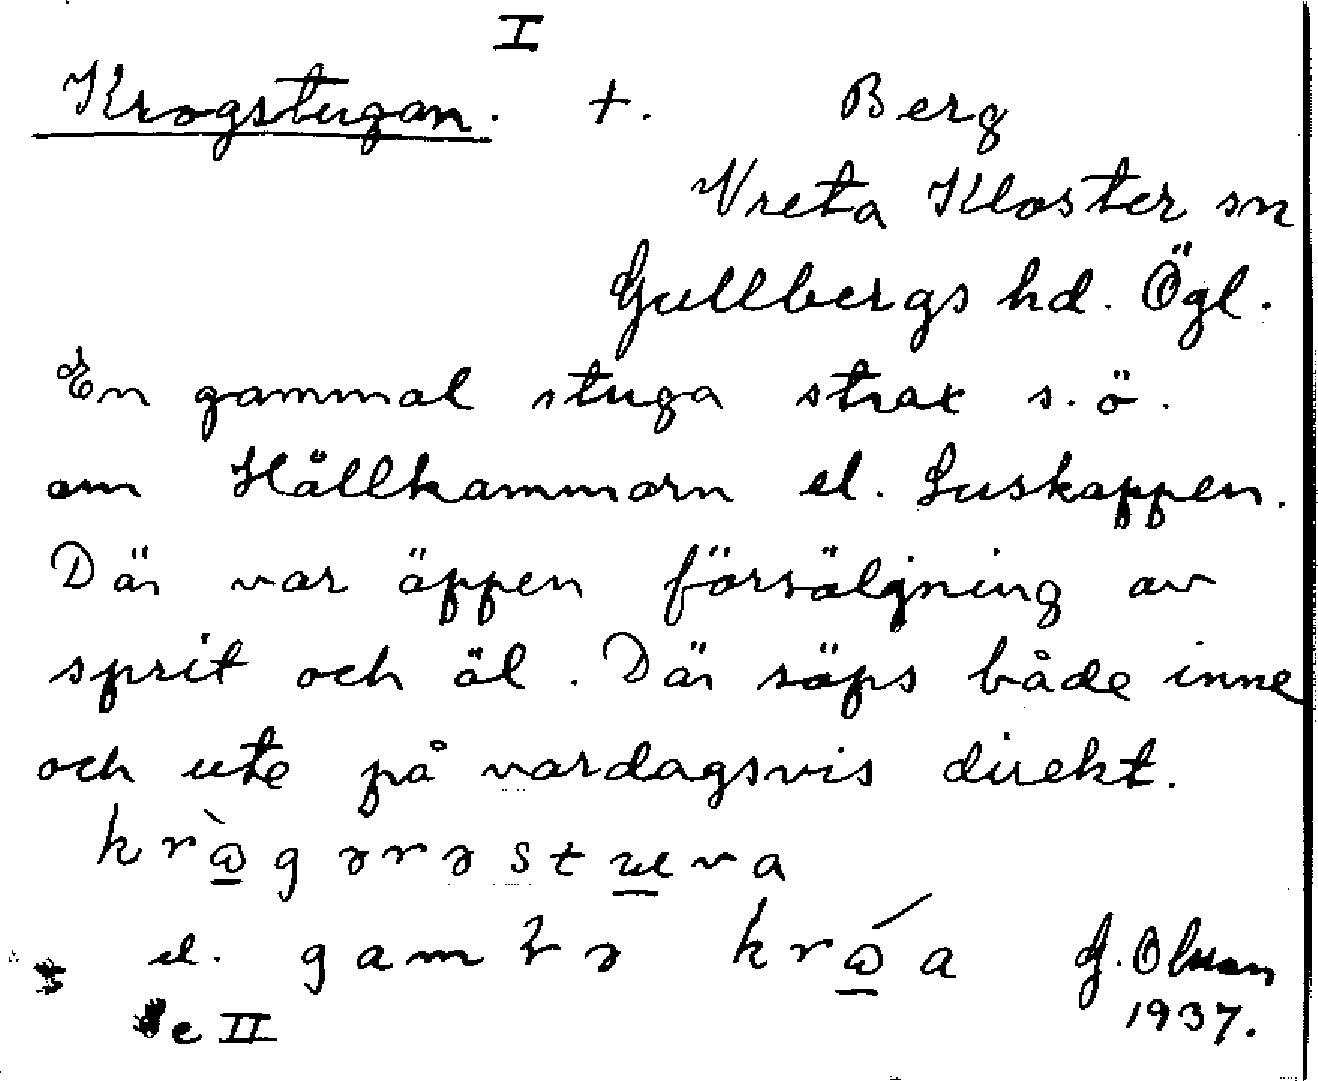 I
Krogstugan. +. Berg
Vreta Kloster sn
Gullbergs hd. Ögl.
En gammal stuga strax s.ö.
om Hällkammarn el. Luskappen.
Där var äppen försäljning av
sprit och äl. Där söps både inne
och ute på vardagsvis direkt.
el.
G. Olsson
1937.
Se II